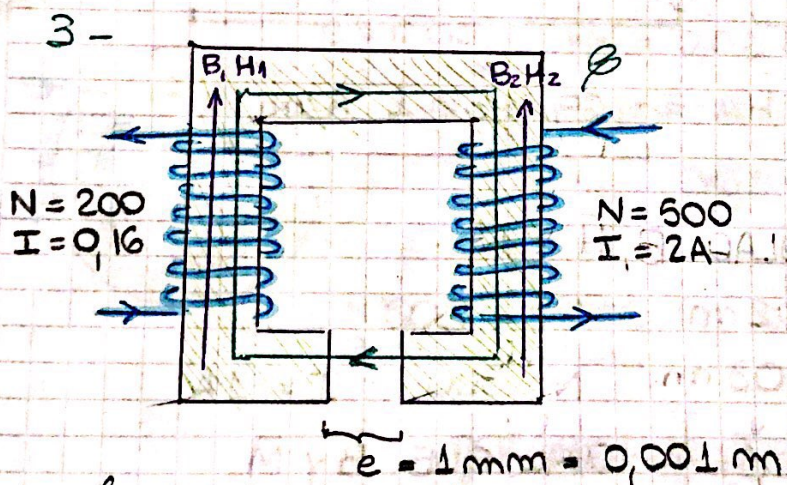 3-
B₁ H₁
B₂ H₂
N = 200
I = 0,16
N = 500
I = 2A
e = 1mm = 0,001 m